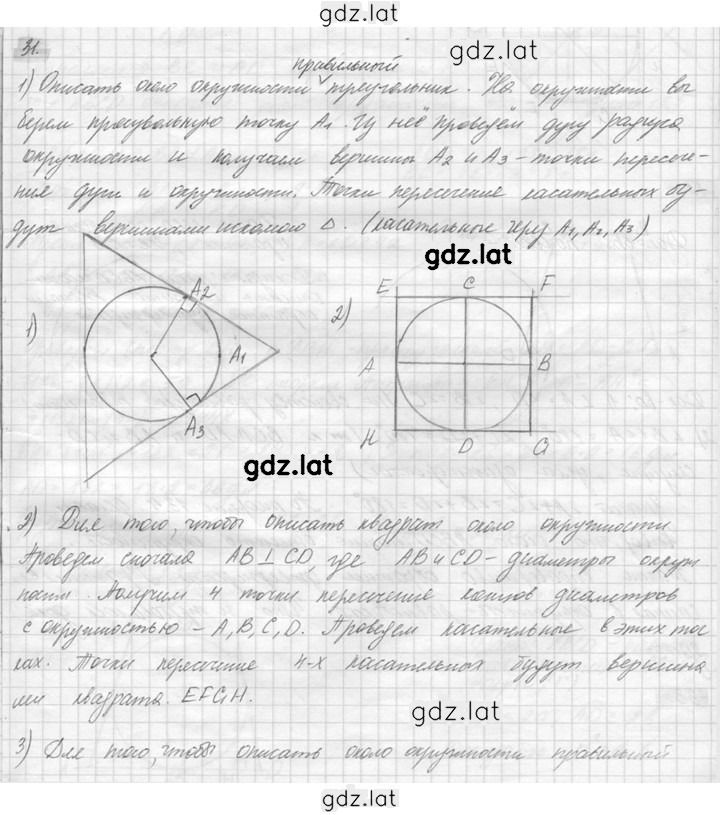 gdz.lat
gdz.lat
31.
правильный
1) Описать около окружности треугольник. На окружности вы
берем произвольную точку А1. Из неё проведём дугу радиуса
окружности и получаем вершины А2 и А3 - точки пересече-
ния дуги и окружности. Точки пересечение касательных бу-
дут вершинами искомого Δ. (касательные через А1, А2, А3)
gdz.lat
1)
A2
A1
A3
2)
E C F
A B
H D G
gdz.lat
2) Для того, чтобы описать квадрат около окружности
Проведем сначала AB⊥CD, где AB и CD - диаметры окруж
ности. Получим 4 точки пересечение концов диаметров
с окружностью - A, B, C, D. Проведем касательные в этих точ
ках. Точки пересечение 4-х касательных будут вершина
ми квадрата. EFGH.
gdz.lat
3) Для того, чтобы описать около окружности правильный
gdz.lat